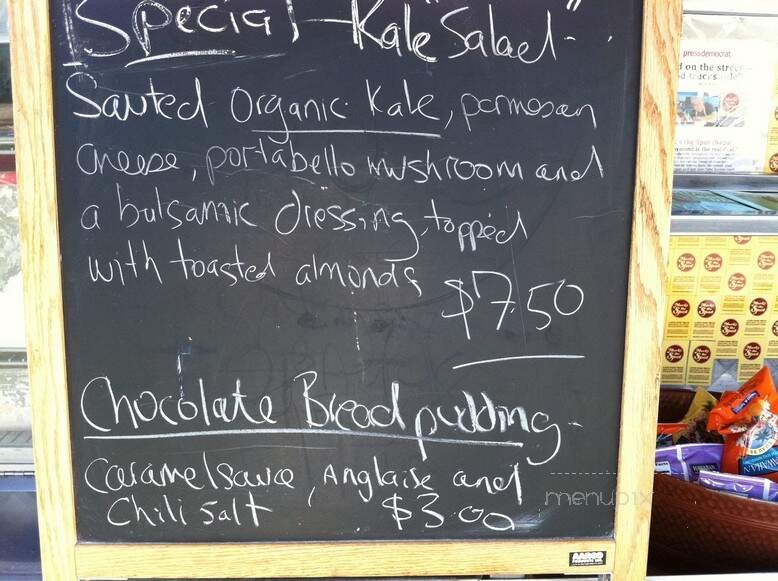 Special - Kale "Salad" -
Sauted Organic Kale, parmesan
cheese, portabello mushroom and
a balsamic dressing, topped
with toasted almonds
$7.50
Chocolate Bread pudding -
Caramel sauce, Anglaise and
Chili Salt $3.00
menupix
pressdemocrat